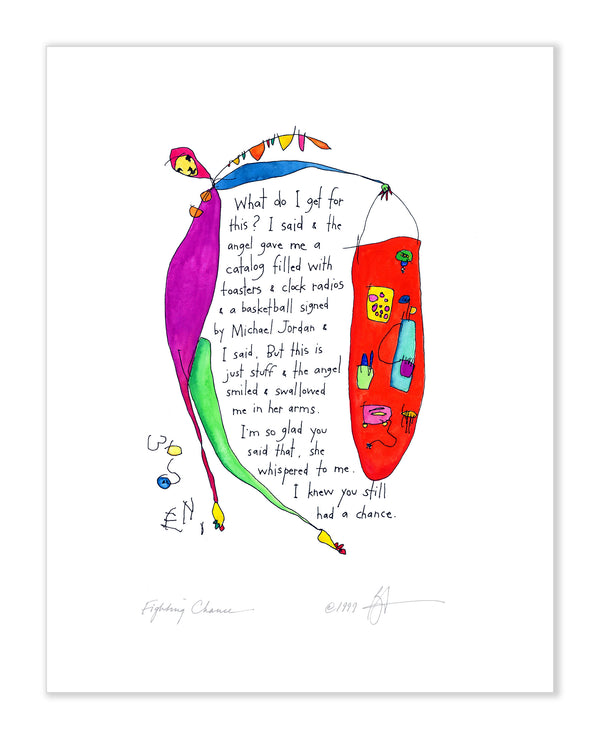 What do I get for
this? I said & the
angel gave me a
catalog filled with
toasters & clock radios
& a basketball signed
by Michael Jordan &
I said, But this is
just stuff & the angel
smiled & swallowed
me in her arms.
I'm so glad you
said that, she
whispered to me.
I knew you still
had a chance.
Fighting Chance
©1999